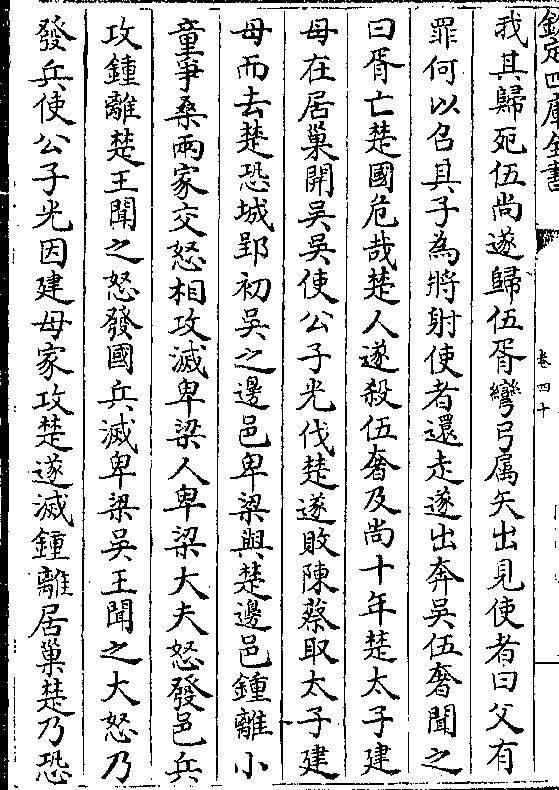 欽定四庫全書
卷四十
我其歸死伍尚遂歸伍胥彎弓屬矢出見使者曰父有
罪何以召其子為將射使者還走遂出奔吳伍奢聞之
曰胥亡楚國危哉楚人遂殺伍奢及尚十年楚太子建
母在居巢開吳吳使公子光伐楚遂敗陳蔡取太子建
母而去楚恐城郢初吳之邊邑卑梁與楚邊邑鍾離小
童爭桑兩家交怒相攻滅卑梁人卑梁大夫怒發邑兵
攻鍾離楚王聞之怒發國兵滅卑梁吳王聞之大怒乃
發兵使公子光因建母家攻楚遂滅鍾離居巢楚乃恐